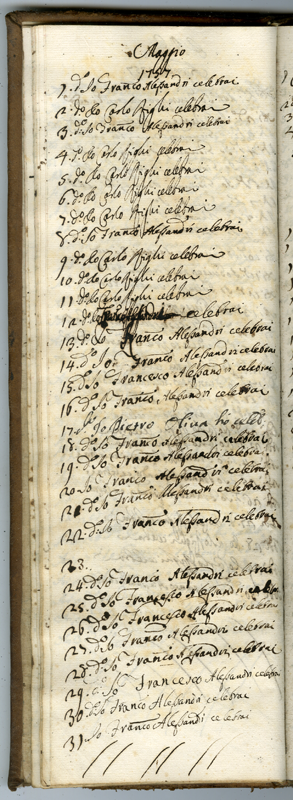 Maggio
1757
1. do Io Franco Alessandri celebrai
2. do Io Carlo Righi celebrai
3. do Io Franco Alessandri celebrai
4. do Io Carlo Righi celebrai
5. do Io Carlo Righi celebrai
6. do Io Carlo Righi celebrai
7. do Io Carlo Righi celebrai
8. do Io Franco Alessandri celebrai
9. do Io Carlo Righi celebrai
10. do Io Carlo Righi celebrai
11. do Io Carlo Righi celebrai
12. do Io celebrai
13. do Io Franco Alessandri celebrai
14. do Io Franco Alessandri celebrai
15. do Io Francesco Alessandri celebrai
16. do Io Franco Alessandri celebrai
17. Io Pietro ho celeb
18. do Io Franco Alessandri celebrai
19. do Io Franco Alessandri celebrai
20 Io Franco Alessandri celebrai
21. do Io Franco Alessandri celebrai
22. do Io Franco Alessandri celebrai
23.
24. do Io Franco Alessandri celebrai
25. do Io Francesco Alessandri celebrai
26. do Io Francesco Alessandri celebrai
27. do Io Franco Alessandri celebrai
28. do Io Franco Alessandri celebrai
29. do Io Francesco Alessandri celebrai
30 do Io Franco Alessandri celebrai
31 Io Franco Alessandri celebrai